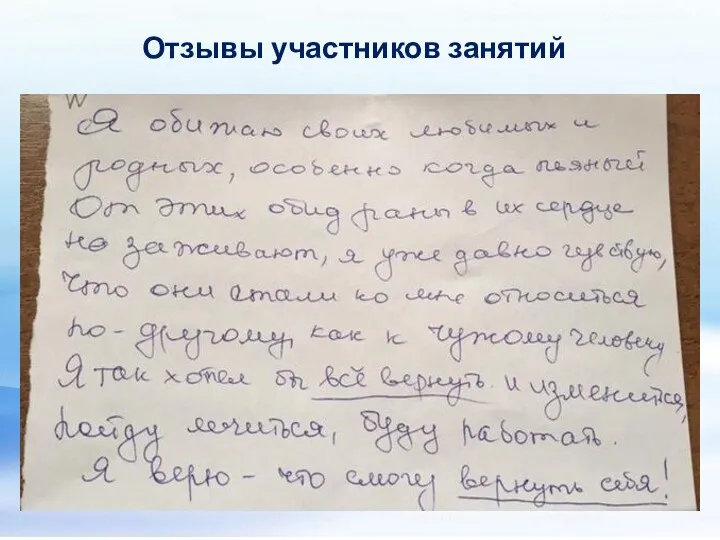 Отзывы участников занятий
Я обижаю своих любимых и
родных, особенно когда пьяный
От этих обид раны в их сердце
не заживают, я уже давно чувствую,
что они стали ко мне относиться
по-другому, как к чужому человеку.
Я так хотел бы всё вернуть. и измениться,
пойду лечиться, буду работать.
Я верю - что смогу вернуть себя!